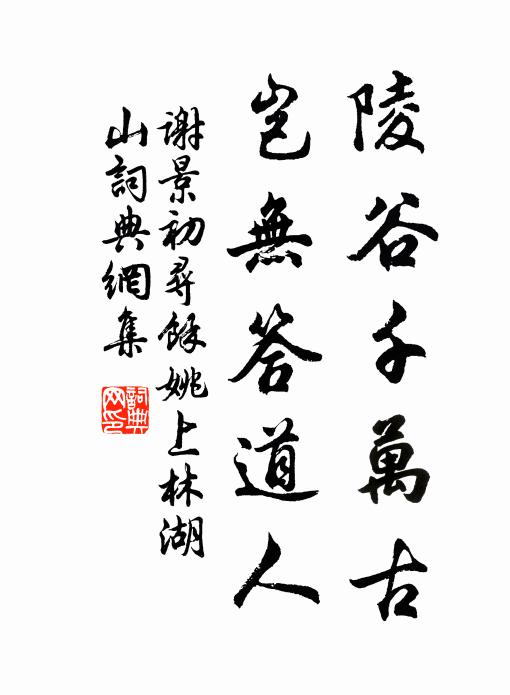 陵谷千萬古
豈無答道人
谢景初尋餘姚上林湖
山詞典網集
詞典
网印